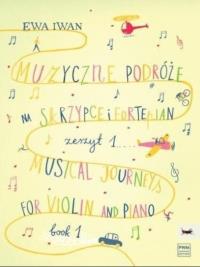 EWA IWAN
MUZYCZNE PODRÓŻE
NA SKRZYPCE I FORTEPIAN
zeszyt 1
MUSICAL JOURNEYS
FOR VIOLIN AND PIANO
book 1
PWM